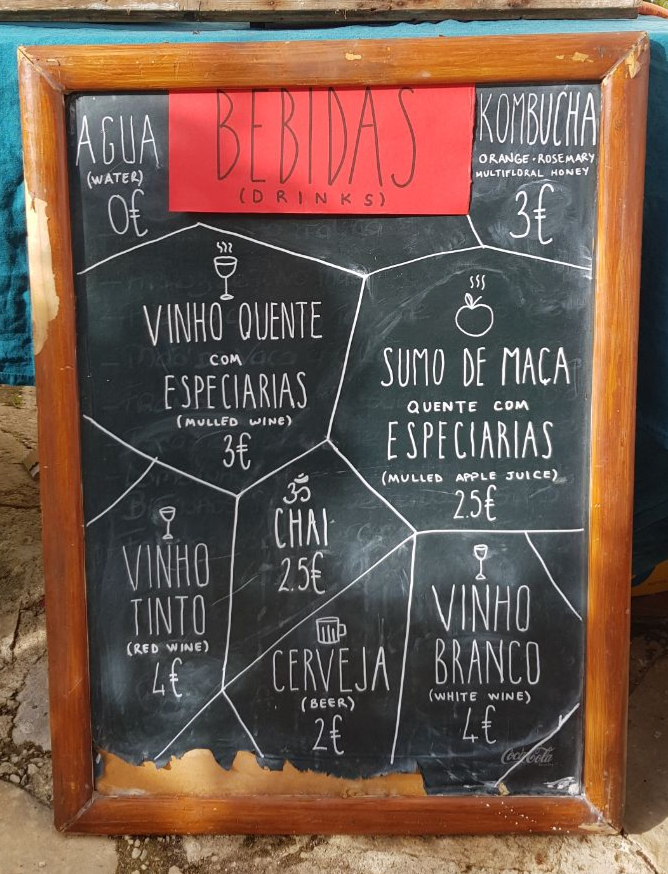 BEBIDAS
(DRINKS)
AGUA
(WATER)
0€
KOMBUCHA
ORANGE · ROSEMARY
MULTIFLORAL HONEY
3€
VINHO QUENTE
COM
ESPECIARIAS
(MULLED WINE)
3€
SUMO DE MAÇA
QUENTE COM
ESPECIARIAS
(MULLED APPLE JUICE)
2.5€
ॐ
CHAI
2.5€
VINHO
TINTO
(RED WINE)
4€
CERVEJA
(BEER)
2€
VINHO
BRANCO
(WHITE WINE)
4€
Coca-Cola